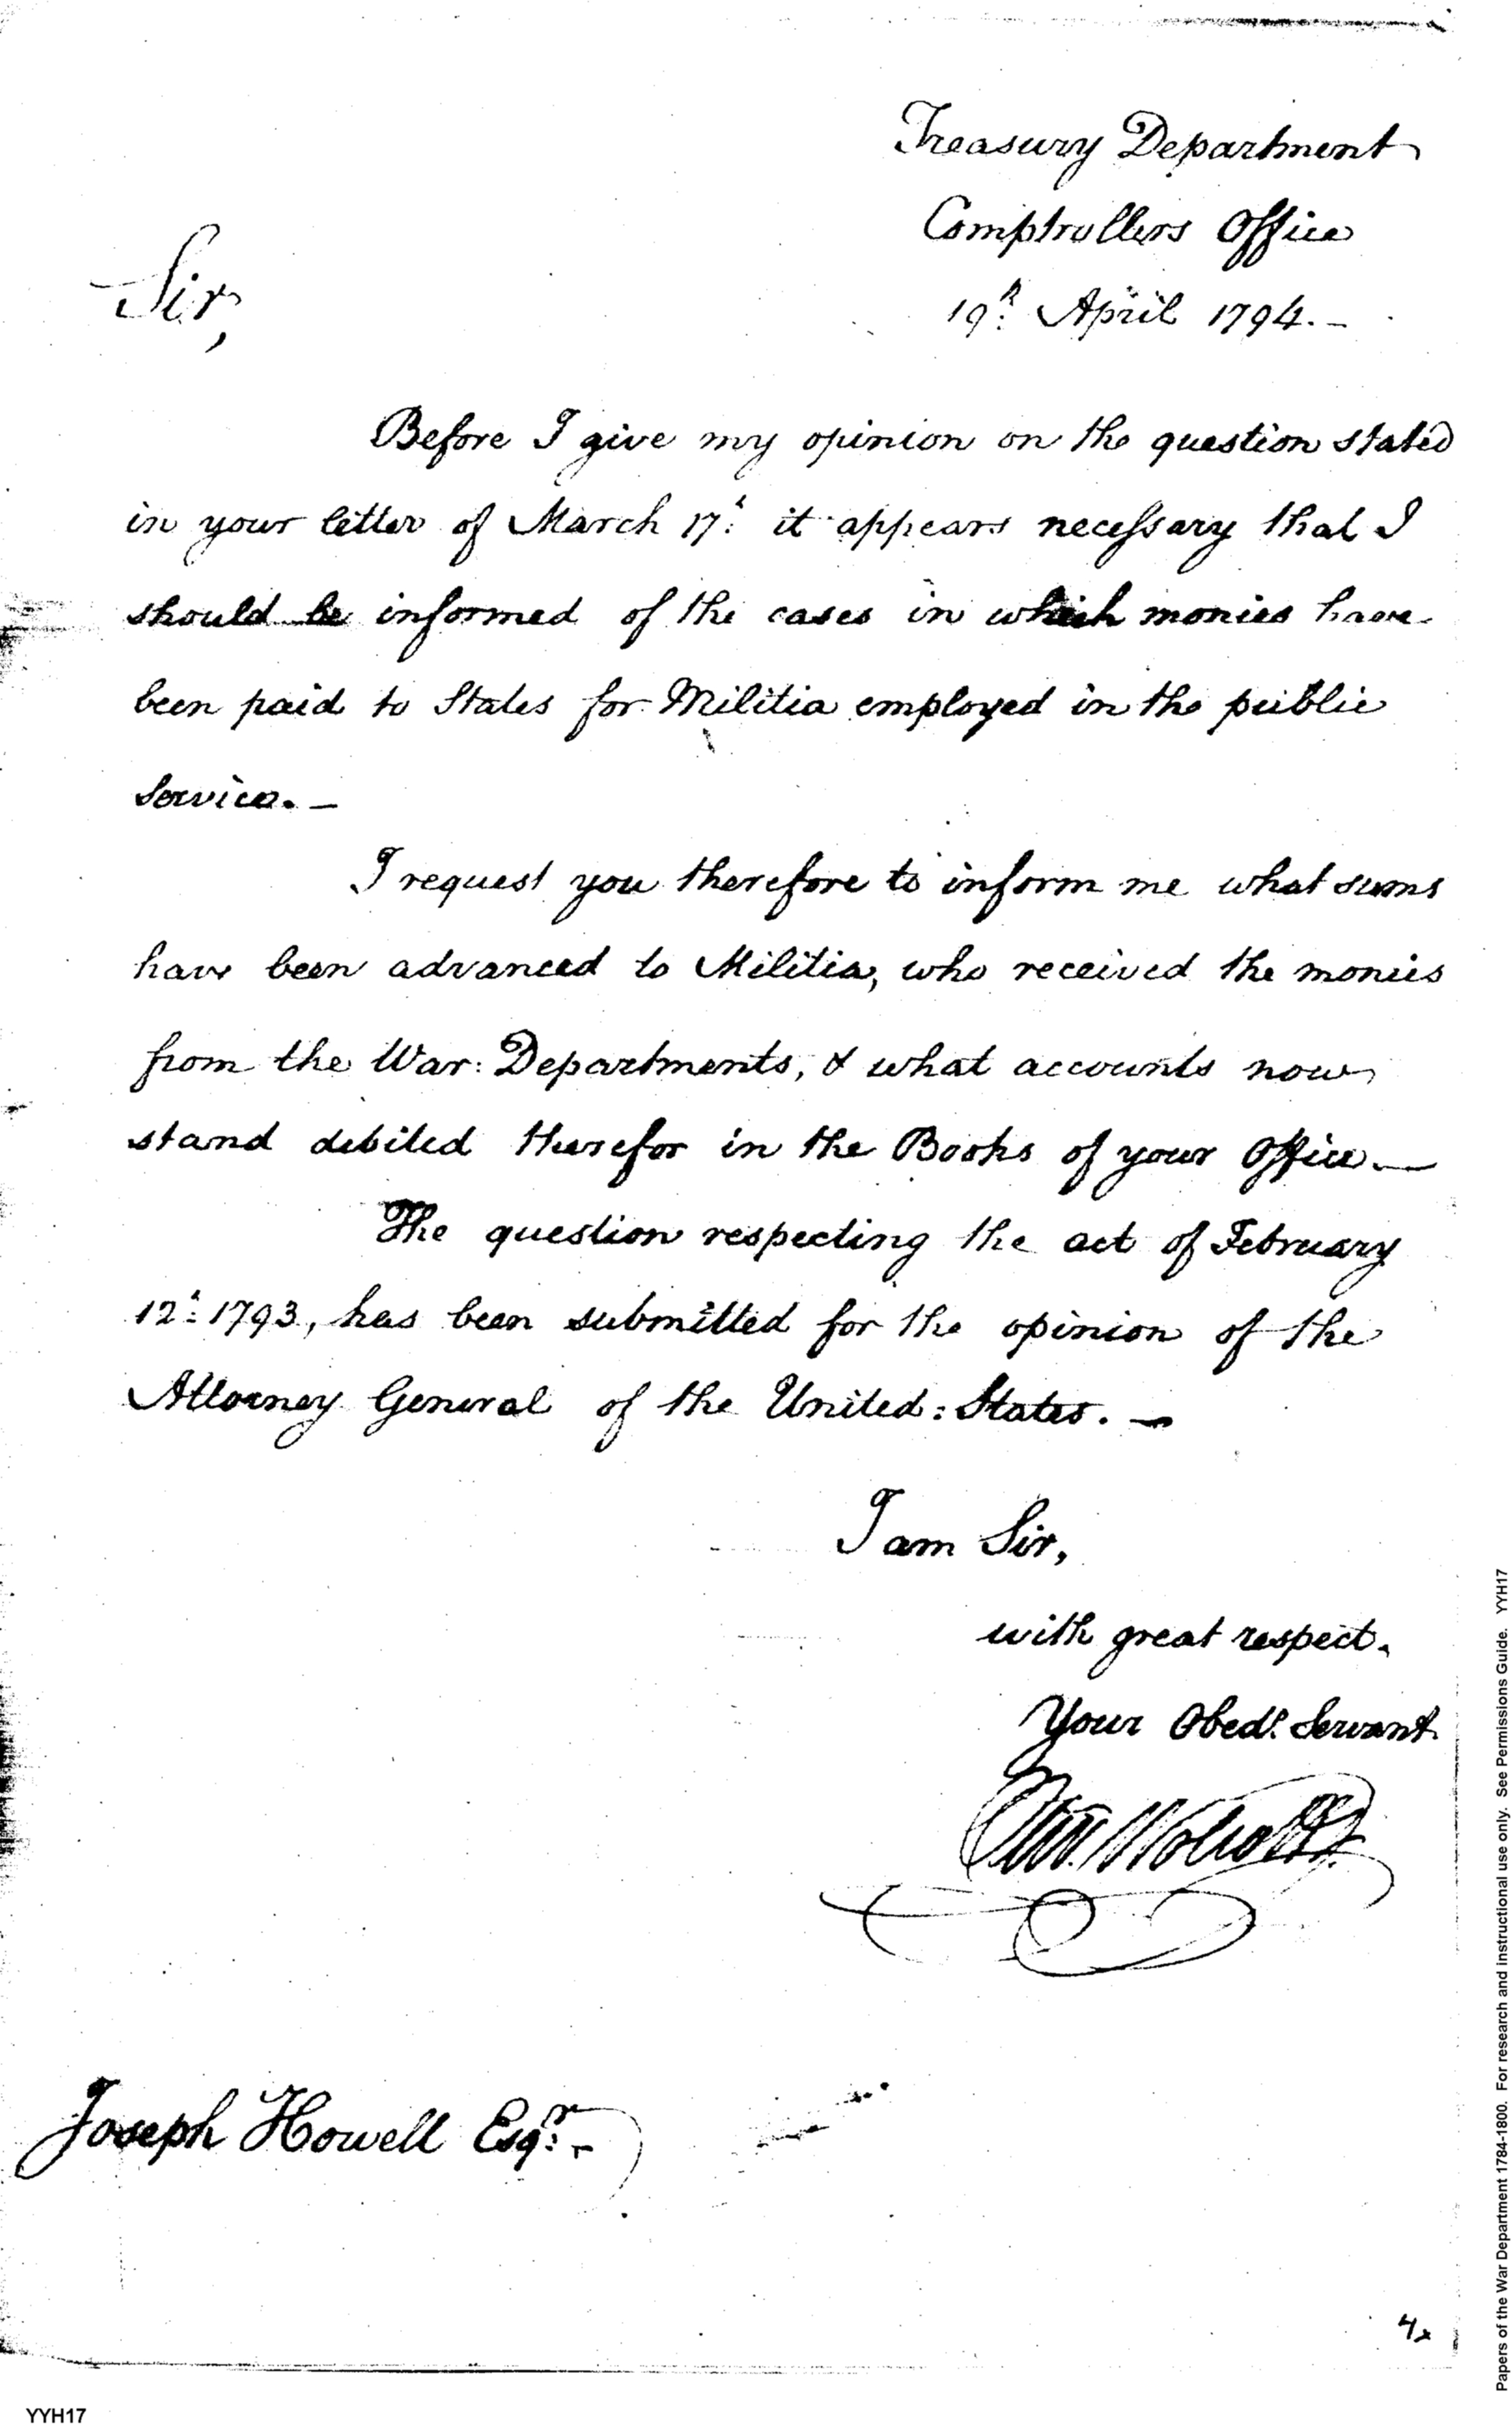 Treasury Department
Comptrollers Office
19th April 1794. -
Sir,
Before I give my opinion on the question stated
in your letter of March 17t it appears necessary that I
should be informed of the cases in which monies have
been paid to States for Militia employed in the public
Service. -
I request you therefore to inform me what sums
have been advanced to Militia, who received the monies
from the War: Departments, & what accounts now
stand debited therefor in the Books of your Office. -
The question respecting the act of February
12t: 1793, has been submitted for the opinion of the
Attorney General of the United: States. -
I am Sir,
with great respect.
Your Obedt. Servant.
Oliv. Wolcott
Joseph Howell Esqr. -
4x
YYH17
Papers of the War Department 1784-1800. For research and instructional use only. See Permissions Guide. YYH17